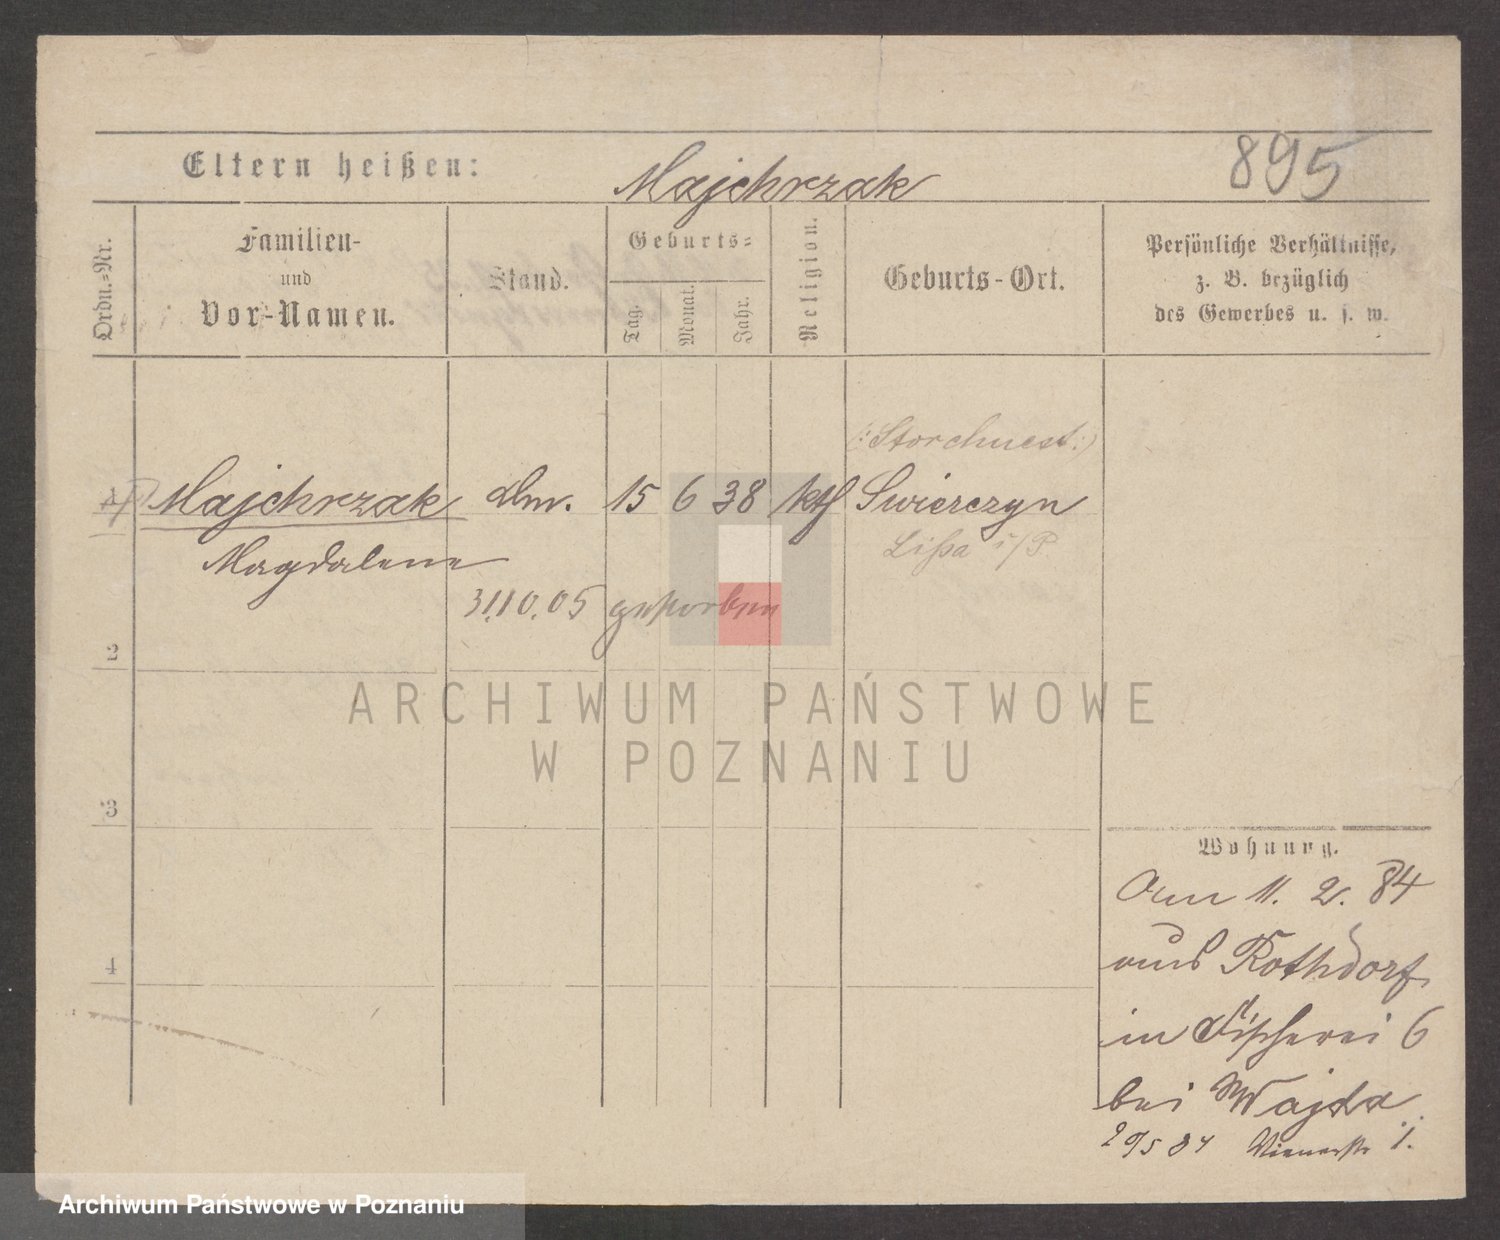 895
Eltern heißen: Majchrzak
Ordn.-Nr.
Familien-
und
Vor-Namen.
Stand.
Geburts-
Tag.
Monat.
Jahr.
Religion.
Geburts-Ort.
Persönliche Verhältnisse,
z. B. bezüglich
des Gewerbes u. s. w.
(: Storchnest :)
1 Majchrzak Dm. 15 6 38 kth Swierczyn
Magdalene Lissa i/P.
31.10.05 gestorben
2
3
4
Wohnung.
Am 11. 2. 84
aus Rothdorf
in Fischerei 6
bei Wajda
29/5 84 1.
ARCHIWUM PAŃSTWOWE
W POZNANIU
Archiwum Państwowe w Poznaniu